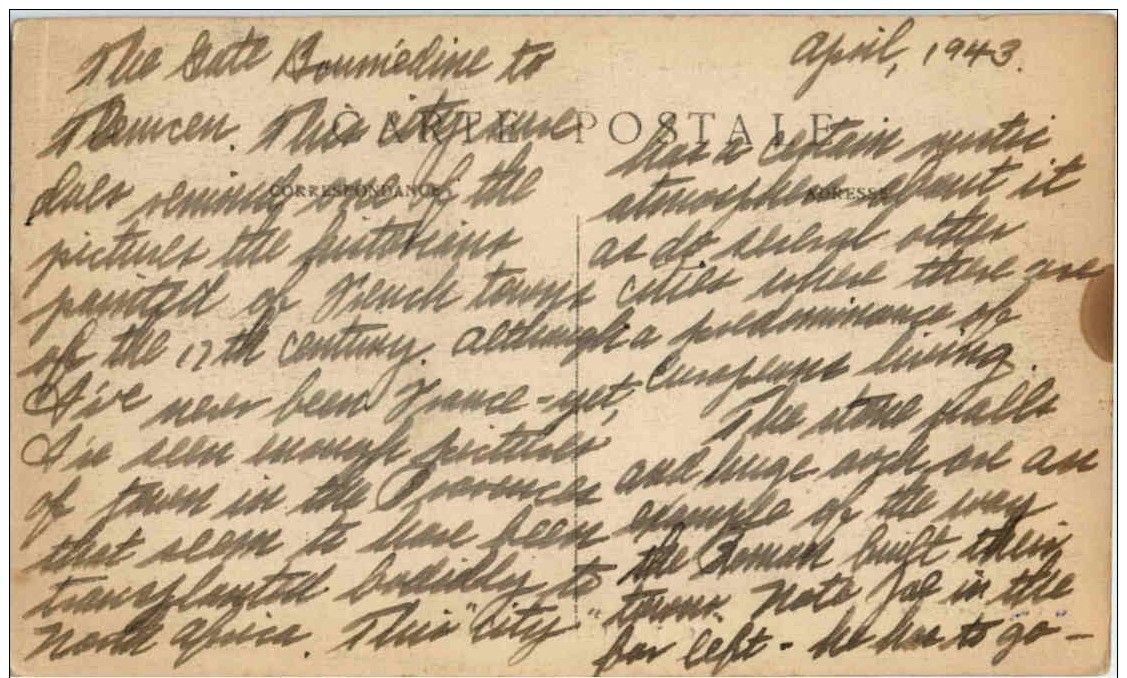 April, 1943.
The Gate Boumédine to
Tlemcen. This city sure
CARTE POSTALE
CORRESPONDANCE
does remind one of the
pictures the historians
painted of French towns
of the 17th century. Although
I've never been France - yet,
I've seen enough pictures
of town in the Provences
that seem to have been
transplanted bodidly to
North Africa. This "city"
ADRESSE
has a certain mystic
atmosphere about it
as do several other
cities where there are
a predominance of
Europeans living.
The stone walls
and huge arch are an
example of the way
the Roman built their
towns. Note Joe in the
far left - he has to "go" -